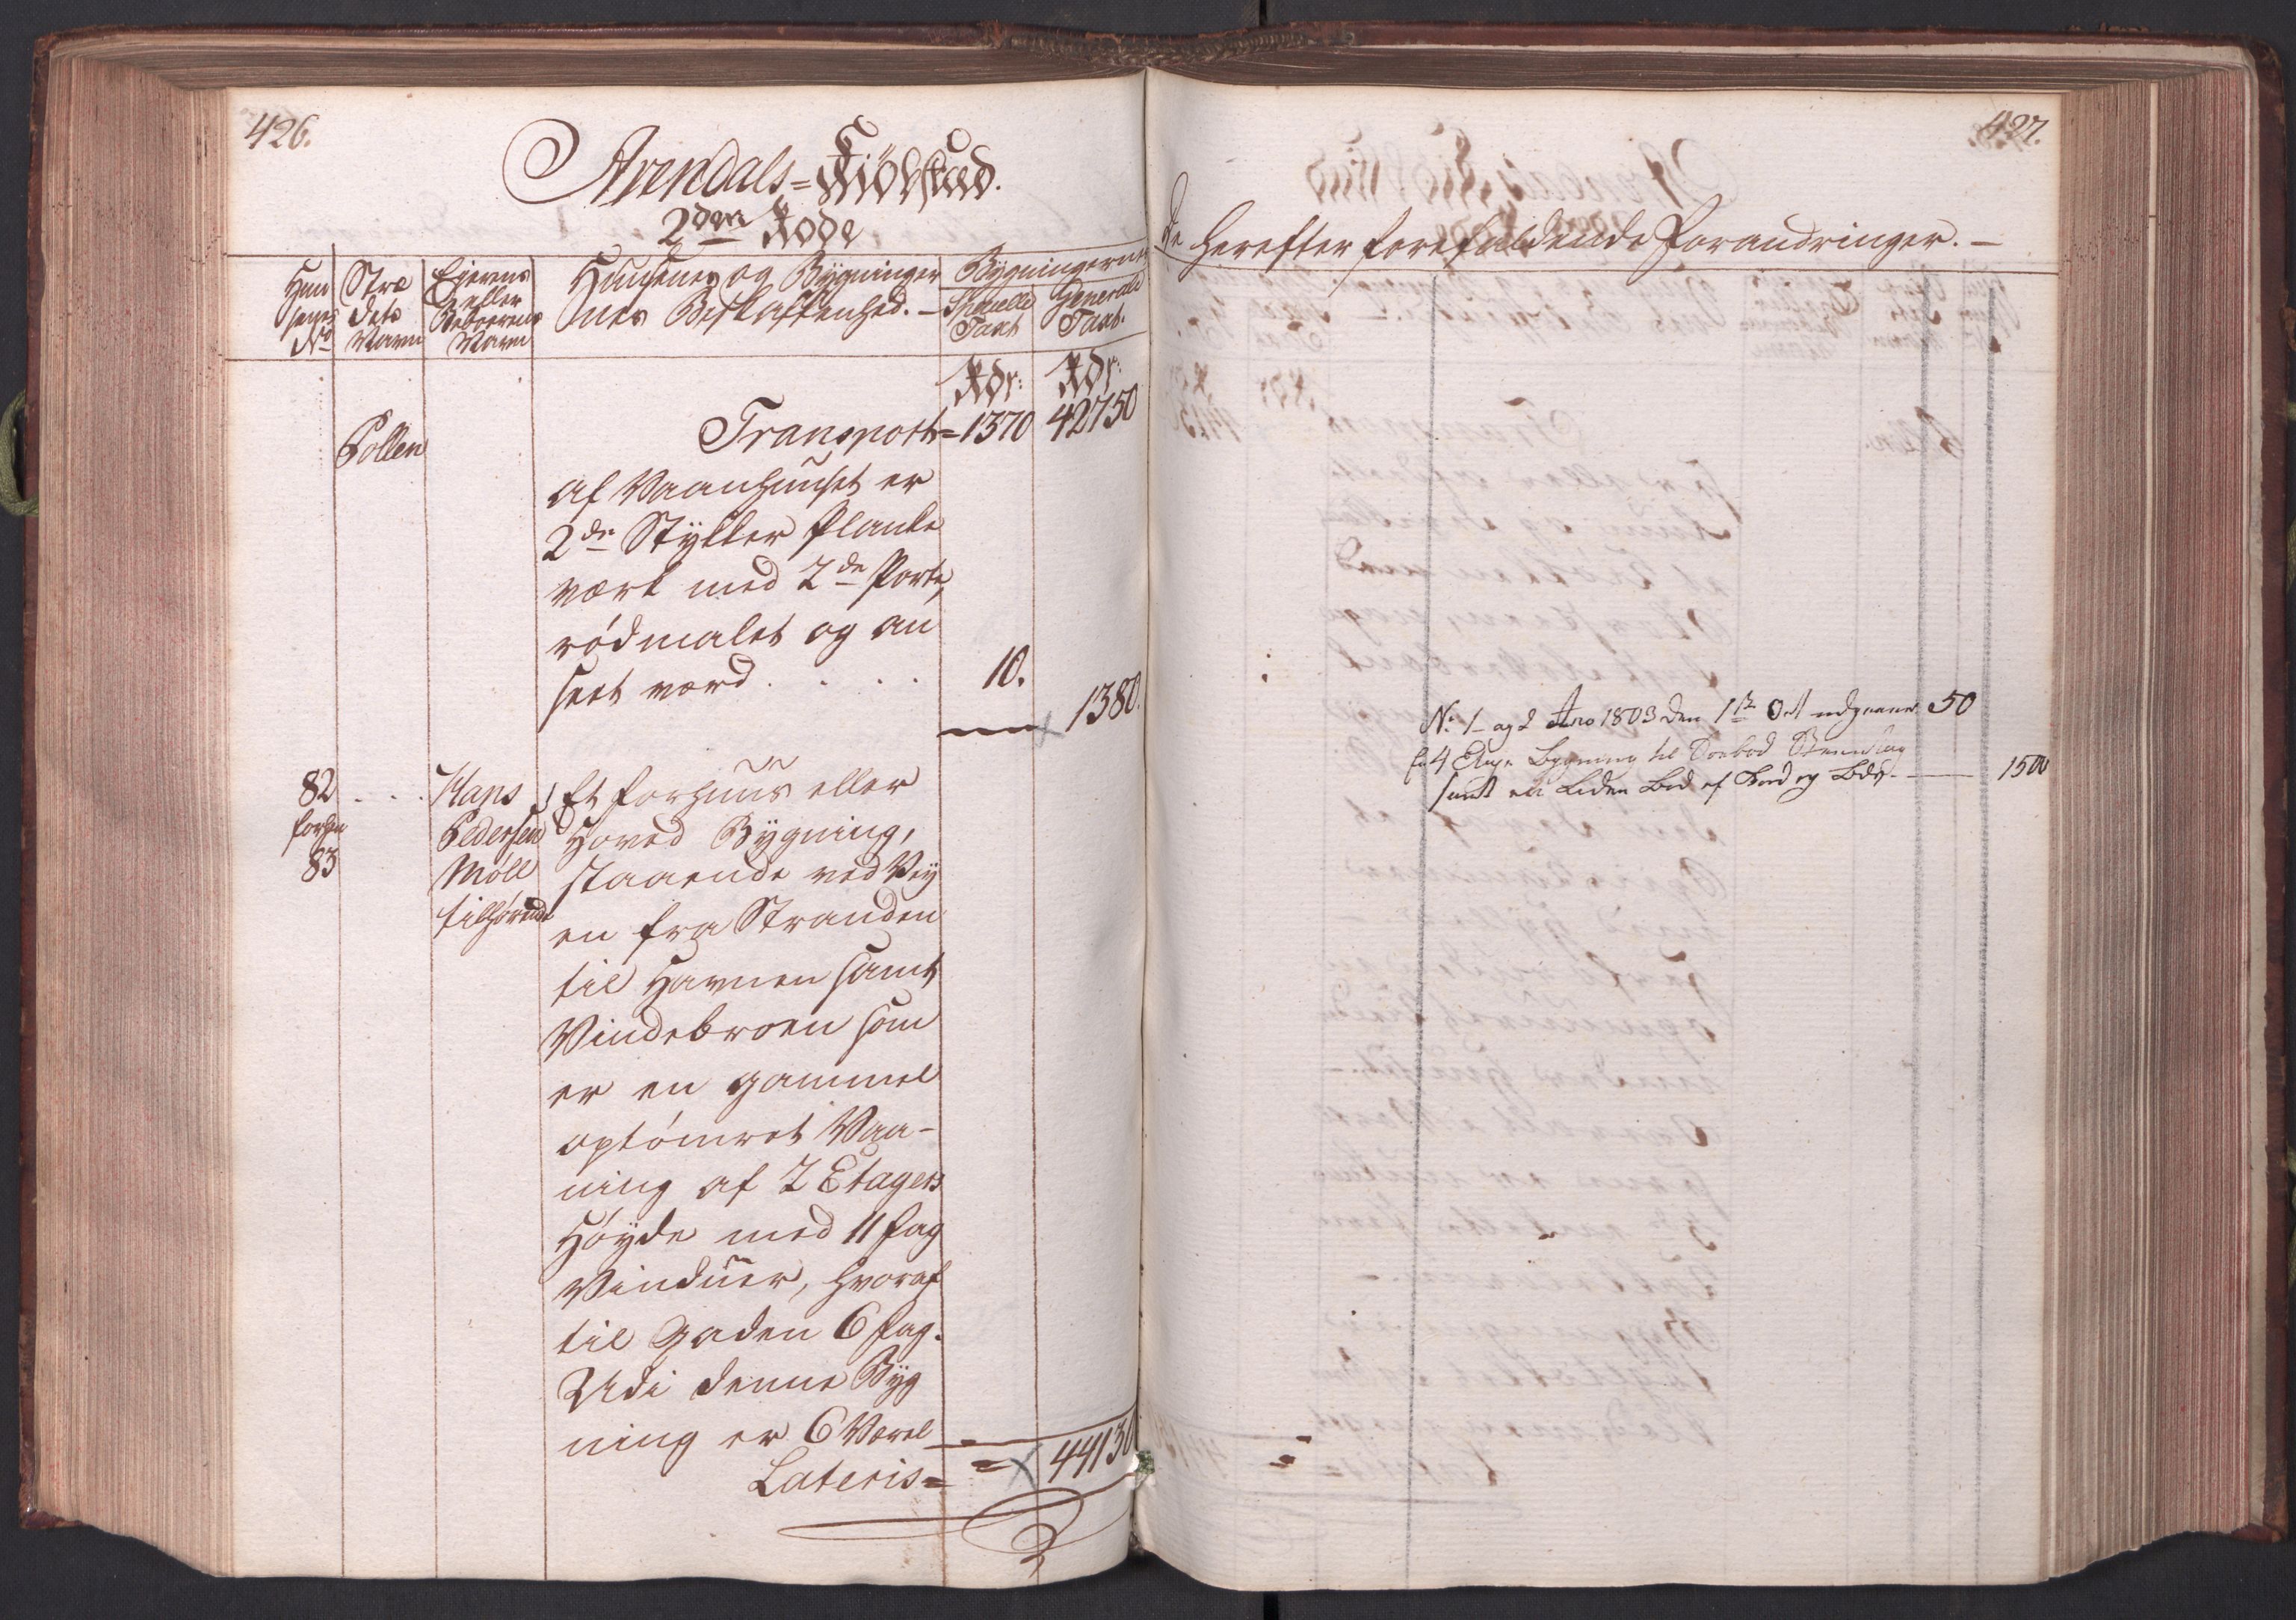 426.
Arendals=Kiöbstæd.
2den Rode
Huu
senes
No
Stræ
dets
Navn
Ejerens
eller
Beboerens
Navn
Huusenes og Bygninger
nes Beskaffenhed.-
Bygningernes
Speciele
Taxt
Generale
Taxt.
Rdr: Rdr:
Pollen
Transport= 1370 42750
af Vaanhuuset er
2de Stykker Planke
værk med 2de Porte,
rödmalet og an
seet værd . . . . 10.
1380.
82
forhen
83
Hans
Pedersen
Möll
tilhörende
Et Forhuus eller
Hoved Bygning,
staaende ved Vey
en fra Stranden
til Havnen samt
Vindebroen som
er en gammel
optömret Vaa-
ning af 2 Etagers
Höyde med 11 fag
Vinduer, hvoraf
til Gaden 6 fag.
Udi denne Byg
ning er 6 Værel
Lateris= = 44130
427.
De herefter forefaldende Forandringer.-
No 1 og 2 Ano 1803 den 1te Oct udgaaer 50
Bygning til
samt en Liden Bod af 1500